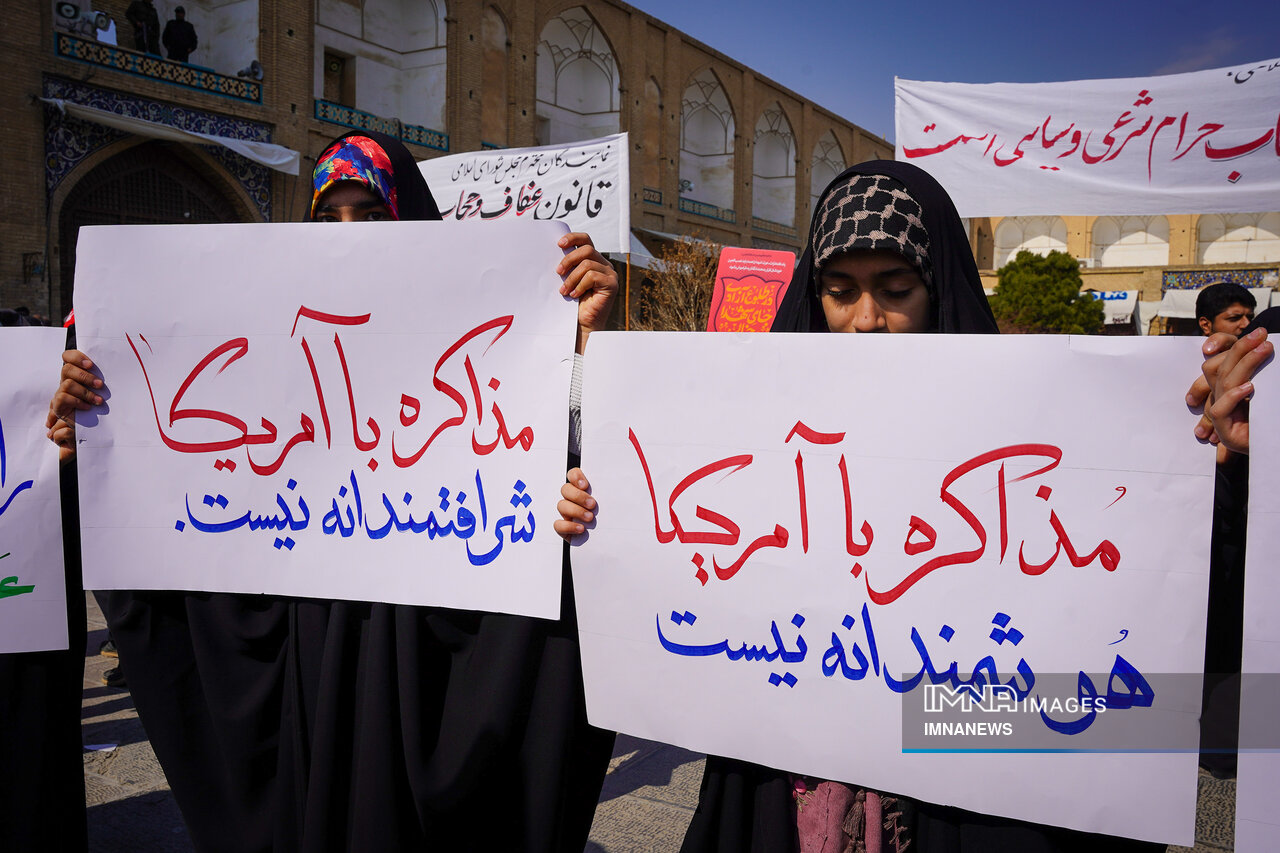 نمایندگان محترم مجلس شورای اسلامی
قانون عفاف و حجاب
حرام شرعی و سیاسی است
مذاکره با آمریکا
شرافتمندانه نیست.
مُذاکره با آمریکا
هُوشمندانه نیست
IMNA IMAGES
IMNANEWS